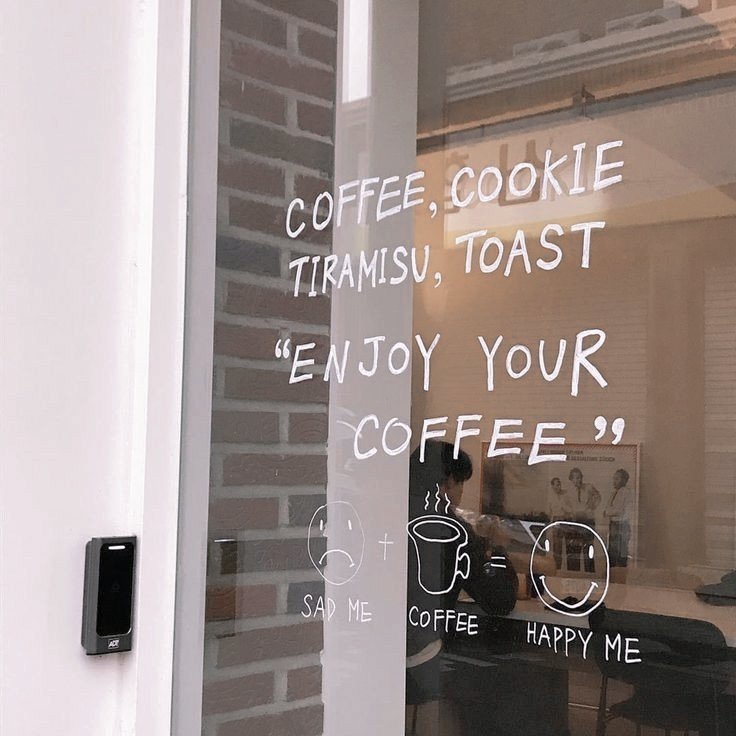 COFFEE, COOKIE
TIRAMISU, TOAST
“ENJOY YOUR
COFFEE”
+ =
SAD ME COFFEE HAPPY ME
ADT